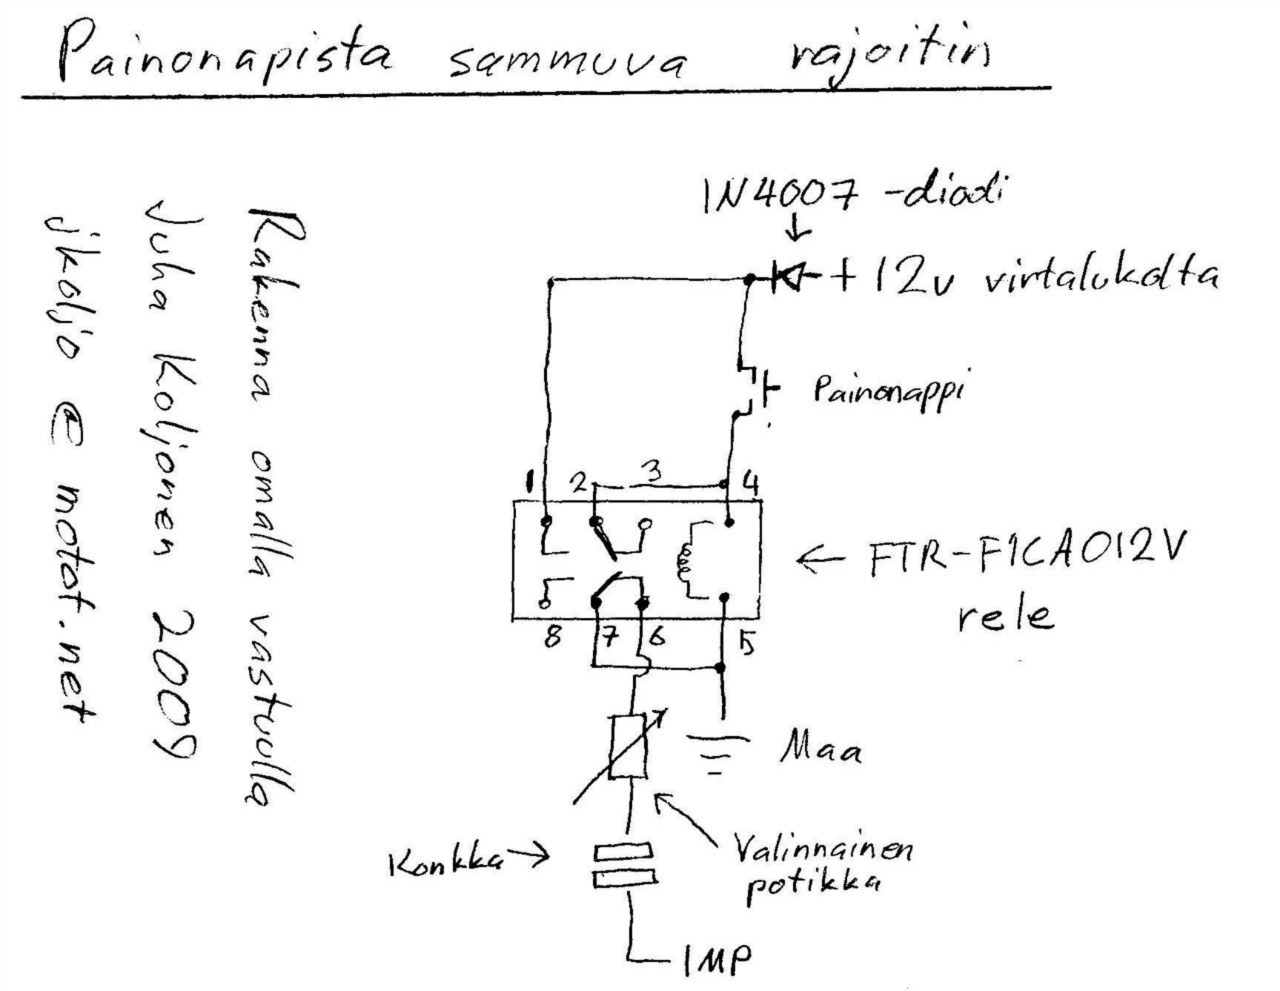 Painonapista sammuva rajoitin
1N4007 -diodi
+12v virtalukolta
Painonappi
1 2 3 4
FTR-F1CA012V
rele
8 7 6 5
Maa
Valinnainen
potikka
Konkka
IMP
Rakenna omalla vastuulla
Juha Koljonen 2009
jkoljo @ motot.net